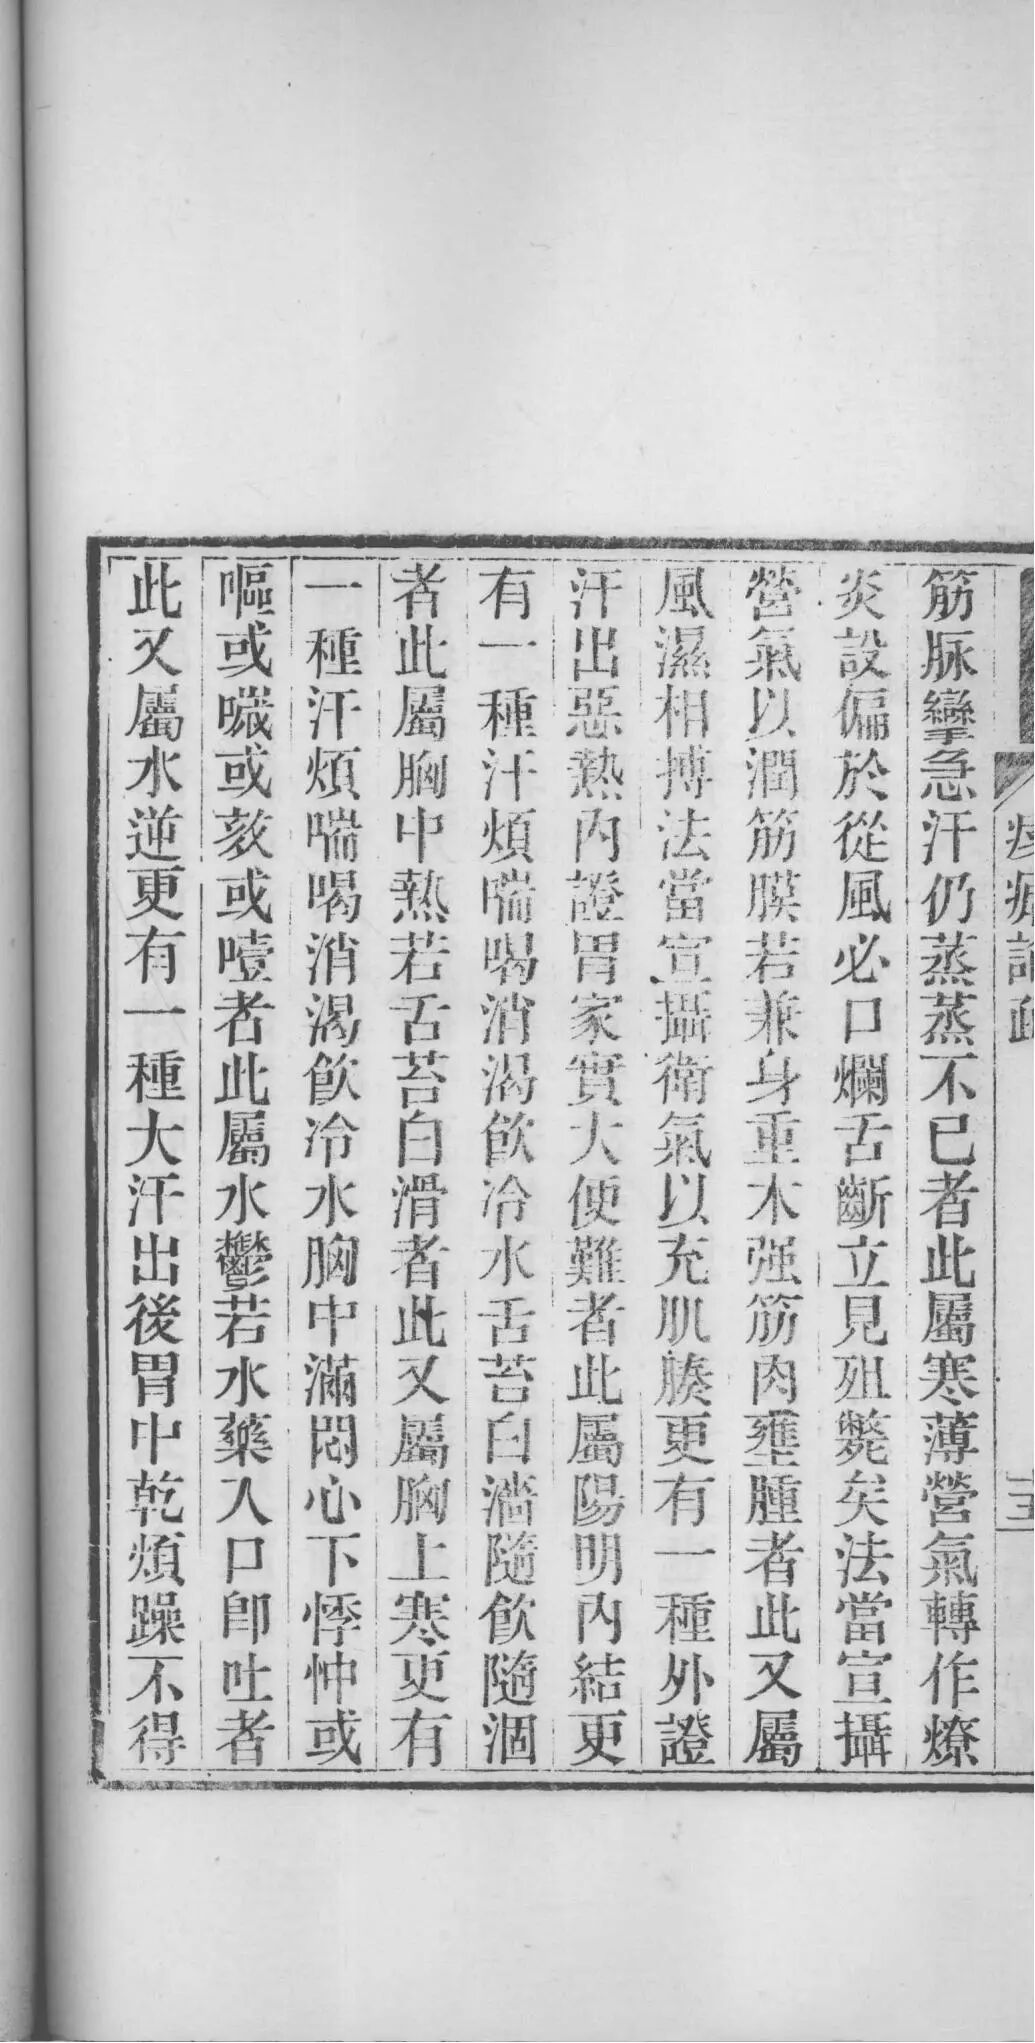 筋脈攣急汗仍蒸蒸不已者此屬寒薄營氣轉作燎
炎設偏於從風必口爛舌斷立見殂斃矣法當宣攝
營氣以潤筋膜若兼身重木强筋肉壅腫者此又屬
風濕相搏法當宣攝衛氣以充肌腠更有一種外證
汗出惡熱內證胃家實大便難者此屬陽明內結更
有一種汗煩喘喝消渴飲冷水舌苔白濇隨飲隨涸
者此屬胸中熱若舌苔白滑者此又屬胸上寒更有
一種汗煩喘喝消渴飲冷水胸中滿悶心下悸忡或
嘔或噦或欬或噎者此屬水鬱若水藥入口卽吐者
此又屬水逆更有一種大汗出後胃中乾煩躁不得